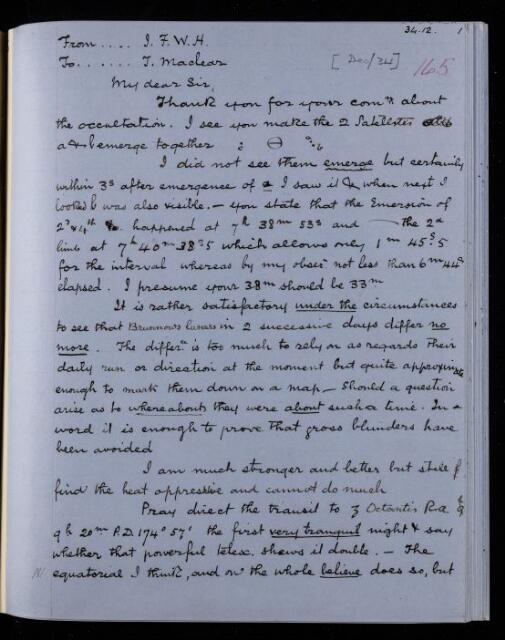 34.12. 1
From ..... J. F. W. H.
To ...... T. Maclear
[Dec/34] 165
My dear Sir,
Thank you for your comn about
the occultation. I see you make the 2 Satellites
a & b emerge together
I did not see them emerge but certainly
within 3s after emergence of a I saw it & when next I
looked b was also visible. — you state that the Emersion of
2d & 4th happened at 7h 38m 53s and the 2d
limb at 7h 40m 38s5 which allows only 1m 45s.5
for the interval whereas by my obsns not less than 6m 44s
elapsed. I presume your 38m should be 33m
It is rather satisfactory under the circumstances
to see that Brunnows lunars in 2 successive days differ no
more. The differce is too much to rely on as regards their
daily run or direction at the moment but quite approximate
enough to mark them down on a map — should a question
arise as to whereabouts they were about such a time. In a
word it is enough to prove that gross blunders have
been avoided
I am much stronger and better but still
find the heat oppressive and cannot do much
Pray direct the transit to ʒ Octantis R.a.
9h 20m P.D. 174° 57' the first very tranquil night & say
whether that powerful telesc. shews it double. — The
equatorial I think, and on the whole believe does so, but